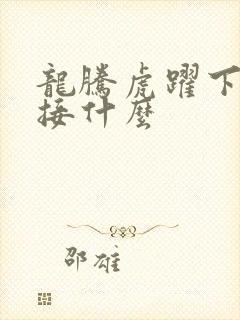 龍騰虎躍下
接什麼
邵雄